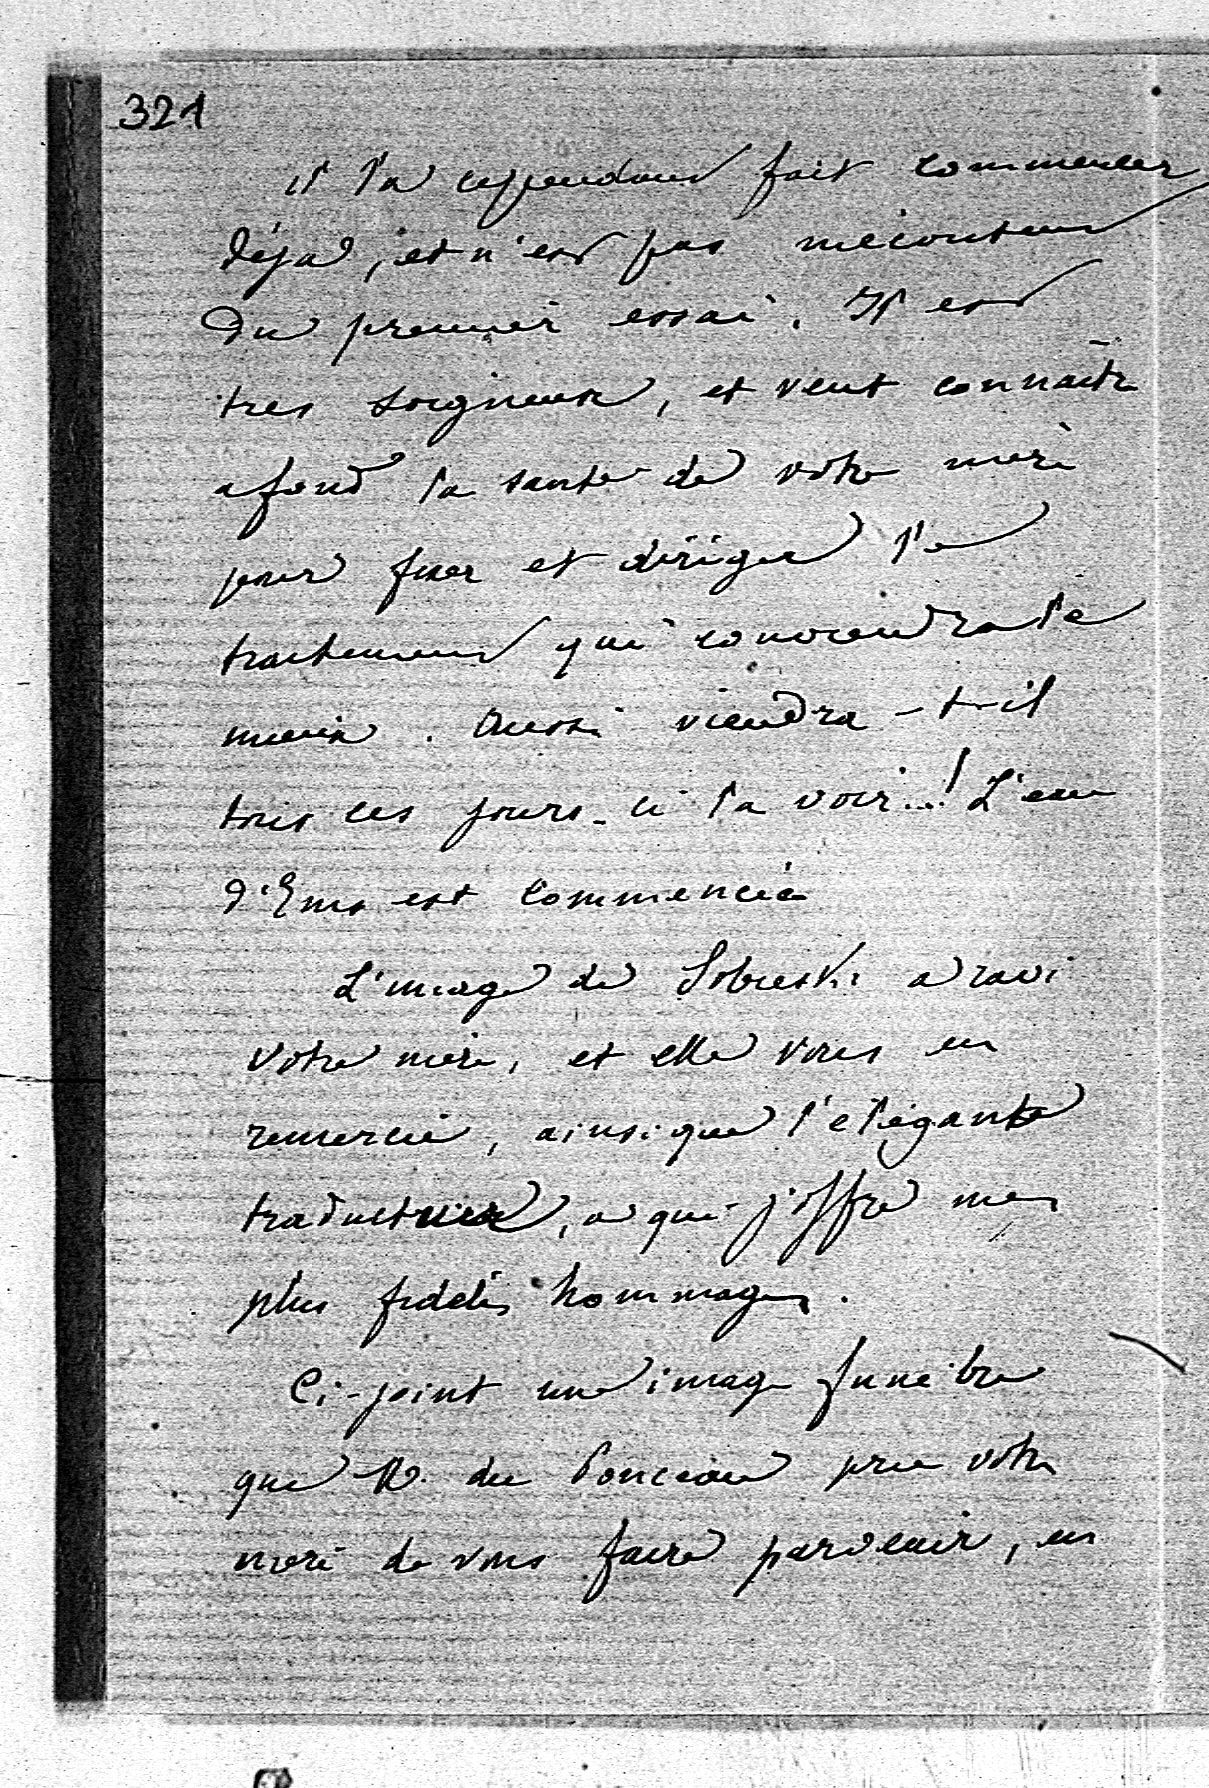 321
il l'a cependant fait commencer
déja, et n'est pas mécontent
du premier essai. Il est
tres soigneux, et veut connaitre
afond la santé de votre mère
pour fixer et diriger le
traitement qui conviendra le
mieux. Aussi viendra-t-il
tous ces jours-ci la voir...! L'eau
d'Ems est commencée
L'image de Sobieski a ravi
votre mère, et elle vous en
remercie, ainsi que l'élégante
traductrice, a qui j'offre mes
plus fidèles hommages.
Ci-joint une image funèbre
que R. du Ponceau prie votre
mère de vous faire parvenir, en